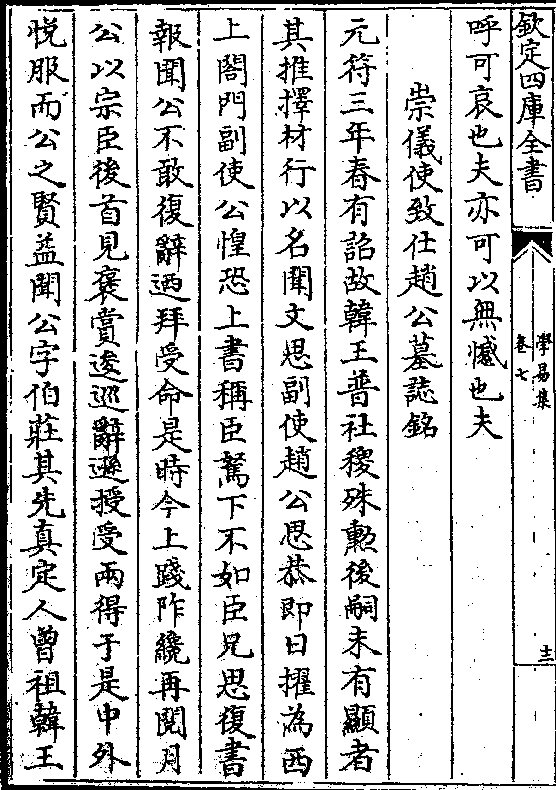 欽定四庫全書
學易集
卷七
十二
呼可哀也夫亦可以無憾也夫
崇儀使致仕趙公墓誌銘
元符三年春有詔故韓王普社稷殊勲後嗣未有顯者
其推擇材行以名聞文思副使趙公思恭即日擢為西
上閤門副使公惶恐上書稱臣駑下不如臣兄思復書
報聞公不敢復辭廼拜受命是時今上踐阼纔再閱月
公以宗臣後首見襃賞逡巡辭遜授受兩得于是中外
悅服而公之賢益聞公字伯莊其先真定人曾祖韓王